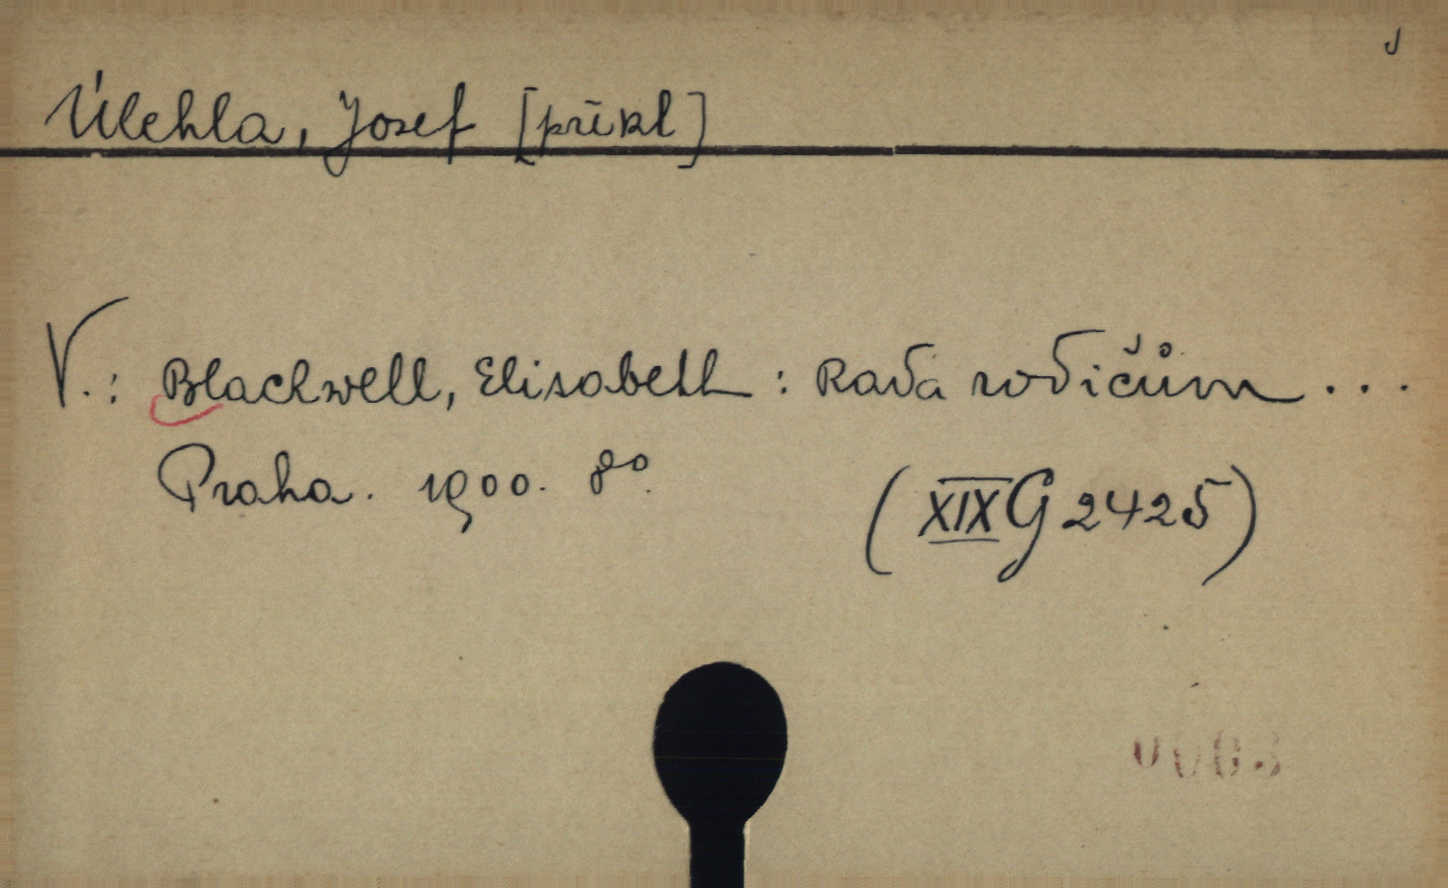 Úlehla, Josef [překl]
V.: Blackwell, Elisabeth: Rada rodičům ...
Praha. 1900. 8o.
(XIX G 2425)